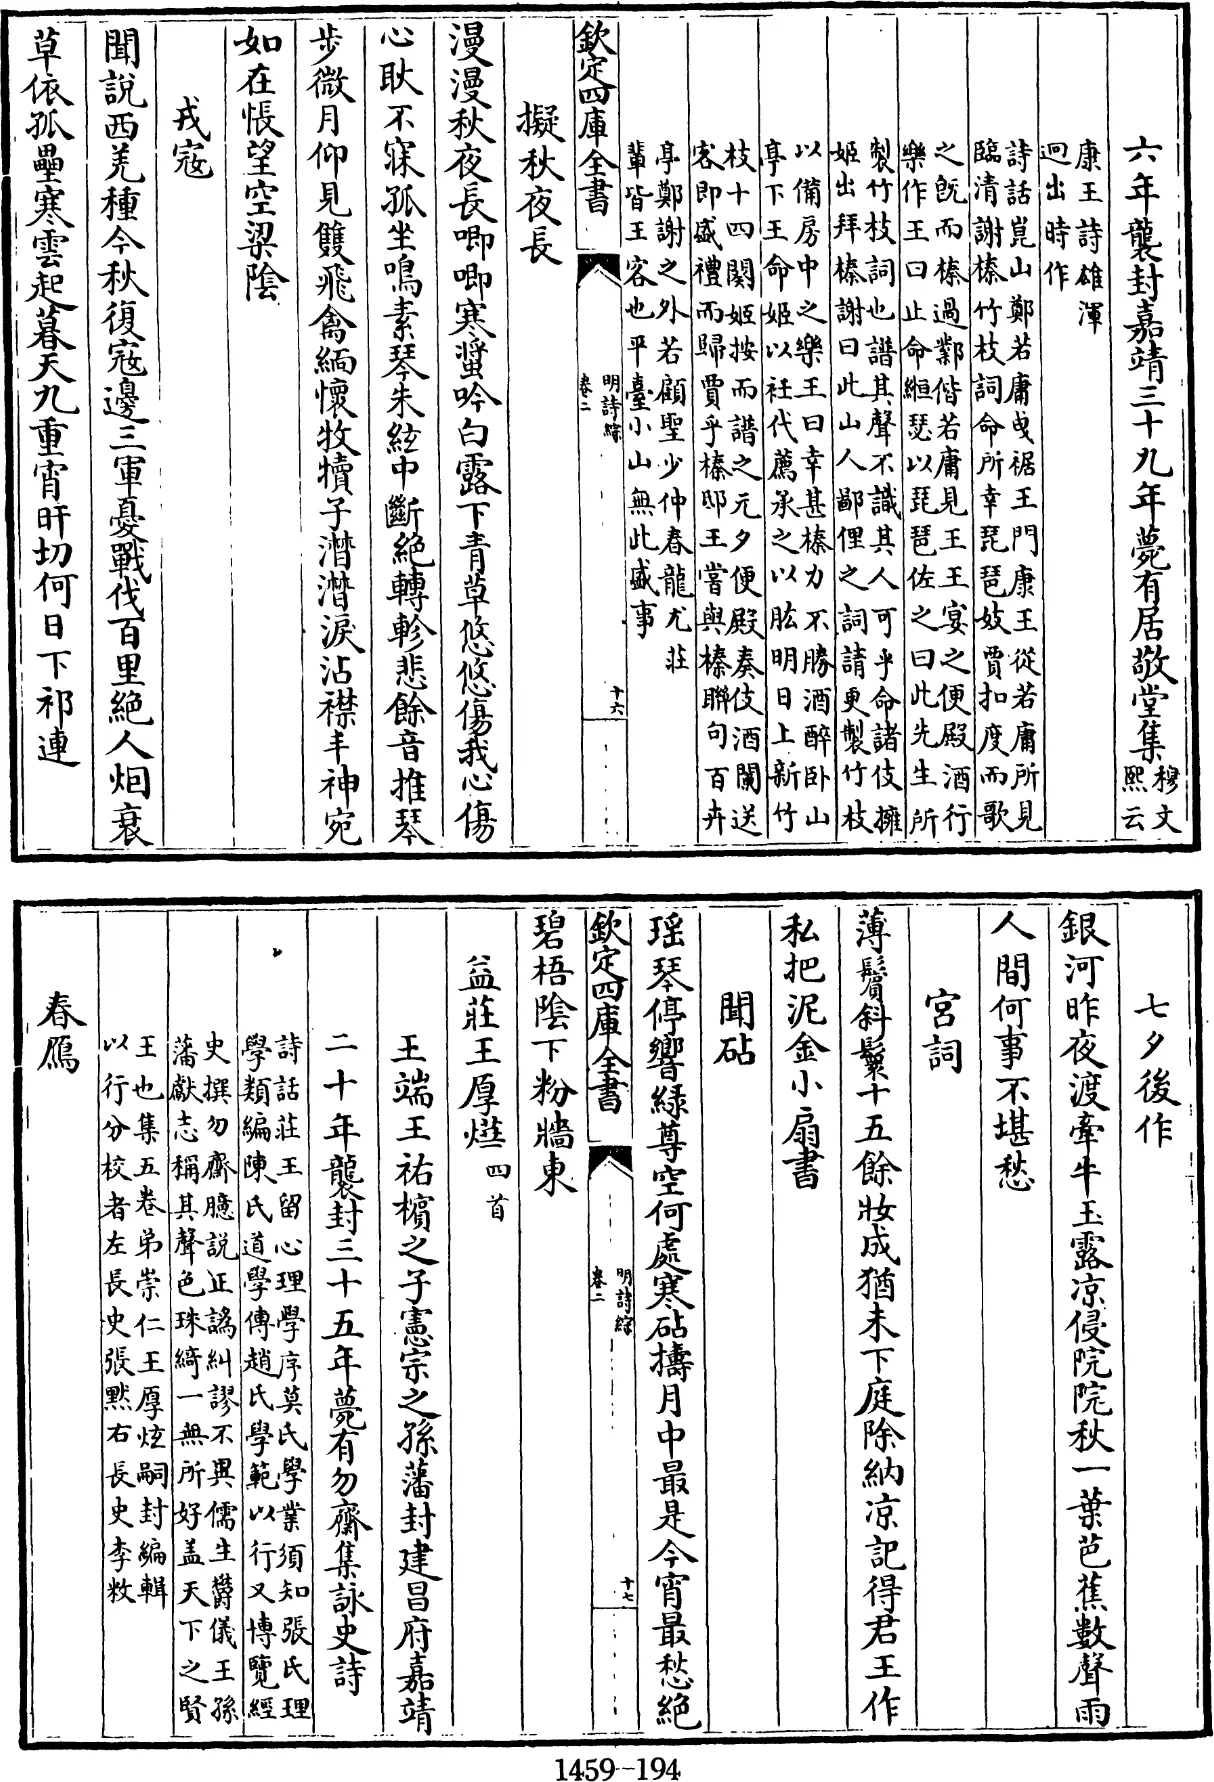 六年襲封嘉靖三十九年薨有居敬堂集穆文
熙云
康王詩雄渾
迥出時作
詩話崑山鄭若庸曵裾王門康王從若庸所見
臨清謝榛竹枝詞命所幸琵琶妓賈扣度而歌
之旣而榛過鄴偕若庸見王王宴之便殿酒行
樂作王曰止命絙瑟以琵琶佐之曰此先生所
製竹枝詞也譜其聲不識其人可乎命諸伎擁
姬出拜榛謝曰此山人鄙俚之詞請更製竹枝
以備房中之樂王曰幸甚榛力不勝酒醉卧山
亭下王命姬以衽代薦承之以肱明日上新竹
枝十四闋姬按而譜之元夕便殿奏伎酒闌送
客即盛禮而歸賈乎榛邸王嘗與榛聯句百卉
亭鄭謝之外若顧聖少仲春龍尤莊
輩皆王客也平臺小山無此盛事
欽定四庫全書
明詩綜
卷二
十六
擬秋夜長
漫漫秋夜長唧唧寒螿吟白露下青草悠悠傷我心傷
心耿不寐孤坐鳴素琴朱絃中斷絶轉軫悲餘音推琴
步微月仰見雙飛禽緬懷牧犢子潸潸淚沾襟丰神宛
如在悵望空梁陰
戎宼
聞說西羌種今秋復宼邊三軍憂戰伐百里絶人烟衰
草依孤壘寒雲起暮天九重宵旰切何日下祁連
七夕後作
銀河昨夜渡牽牛玉露凉侵院院秋一葉芭蕉數聲雨
人間何事不堪愁
宮詞
薄鬢斜鬟十五餘妝成猶未下庭除納凉記得君王作
私把泥金小扇書
聞砧
瑶琴停響緑尊空何處寒砧擣月中最是今宵最愁絶
欽定四庫全書
明詩綜
卷二
十七
碧梧陰下粉牆東
益莊王厚燁四首
王端王祐檳之子憲宗之孫藩封建昌府嘉靖
二十年襲封三十五年薨有勿齋集詠史詩
詩話莊王留心理學序莫氏學業須知張氏理
學類編陳氏道學傳趙氏學範以行又博覽經
史撰勿齋臆說正譌糾謬不異儒生欝儀王孫
藩獻志稱其聲色珠綺一無所好盖天下之賢
王也集五卷弟崇仁王厚炫嗣封編輯
以行分校者左長史張黙右長史李敉
春鴈
1459--194